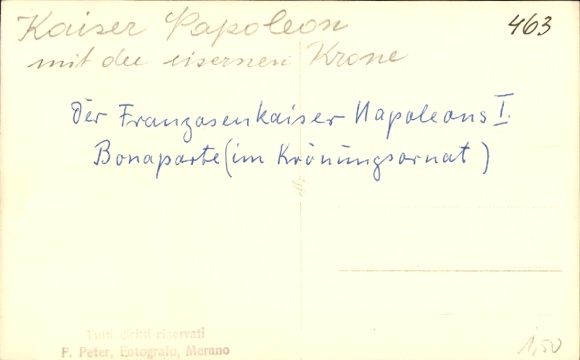 Kaiser Papoleon
463
mit der eisernen Krone
Der Franzosenkaiser Napoleons I.
Bonaparte (im Krönungsornat)
Tutti diritti riservati
F. Peter, Fotografo, Merano
1,50